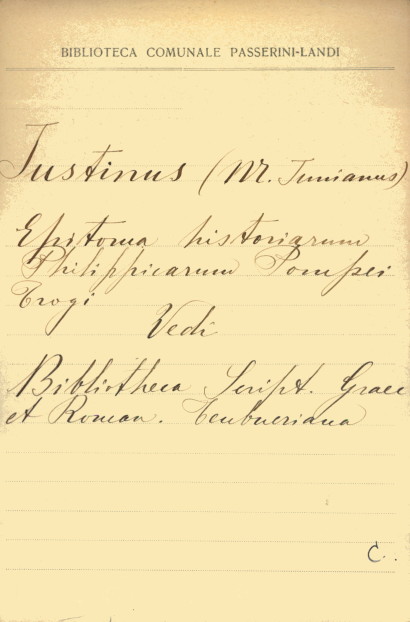 BIBLIOTECA COMUNALE PASSERINI-LANDI
Justinus (M. Junianus)
Epitoma historiarum
Philippicarum Pompei
Trogi
Vedi
Bibliotheca Script. Graec
et Roman. Teubneriana
C.